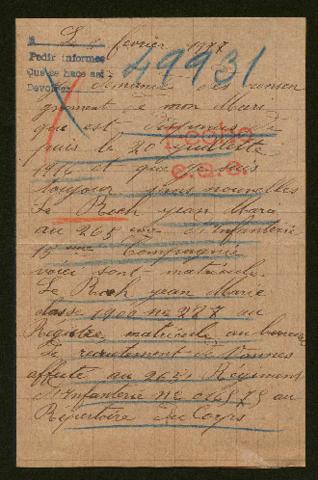 Le 6 février 1917
Pedir informes
Que se hace asi
Devolver
49931
demande des rensein
gnement de mon Mari
que est disparus de
puis le 20 juillette
1916 et que je suis
toujour sans nouvelles
Le Roch jean Marie
au 265 eme d'Infanterie
15 eme Compagnie
voici sont matricule
Le Roch jean Marie
classe 1900 nº 227 au
Registre matricule au bureau
de recrutement de Vannes
affuté au 265 Régiment
d'Infanterie Nº au
Répertoire du Corps